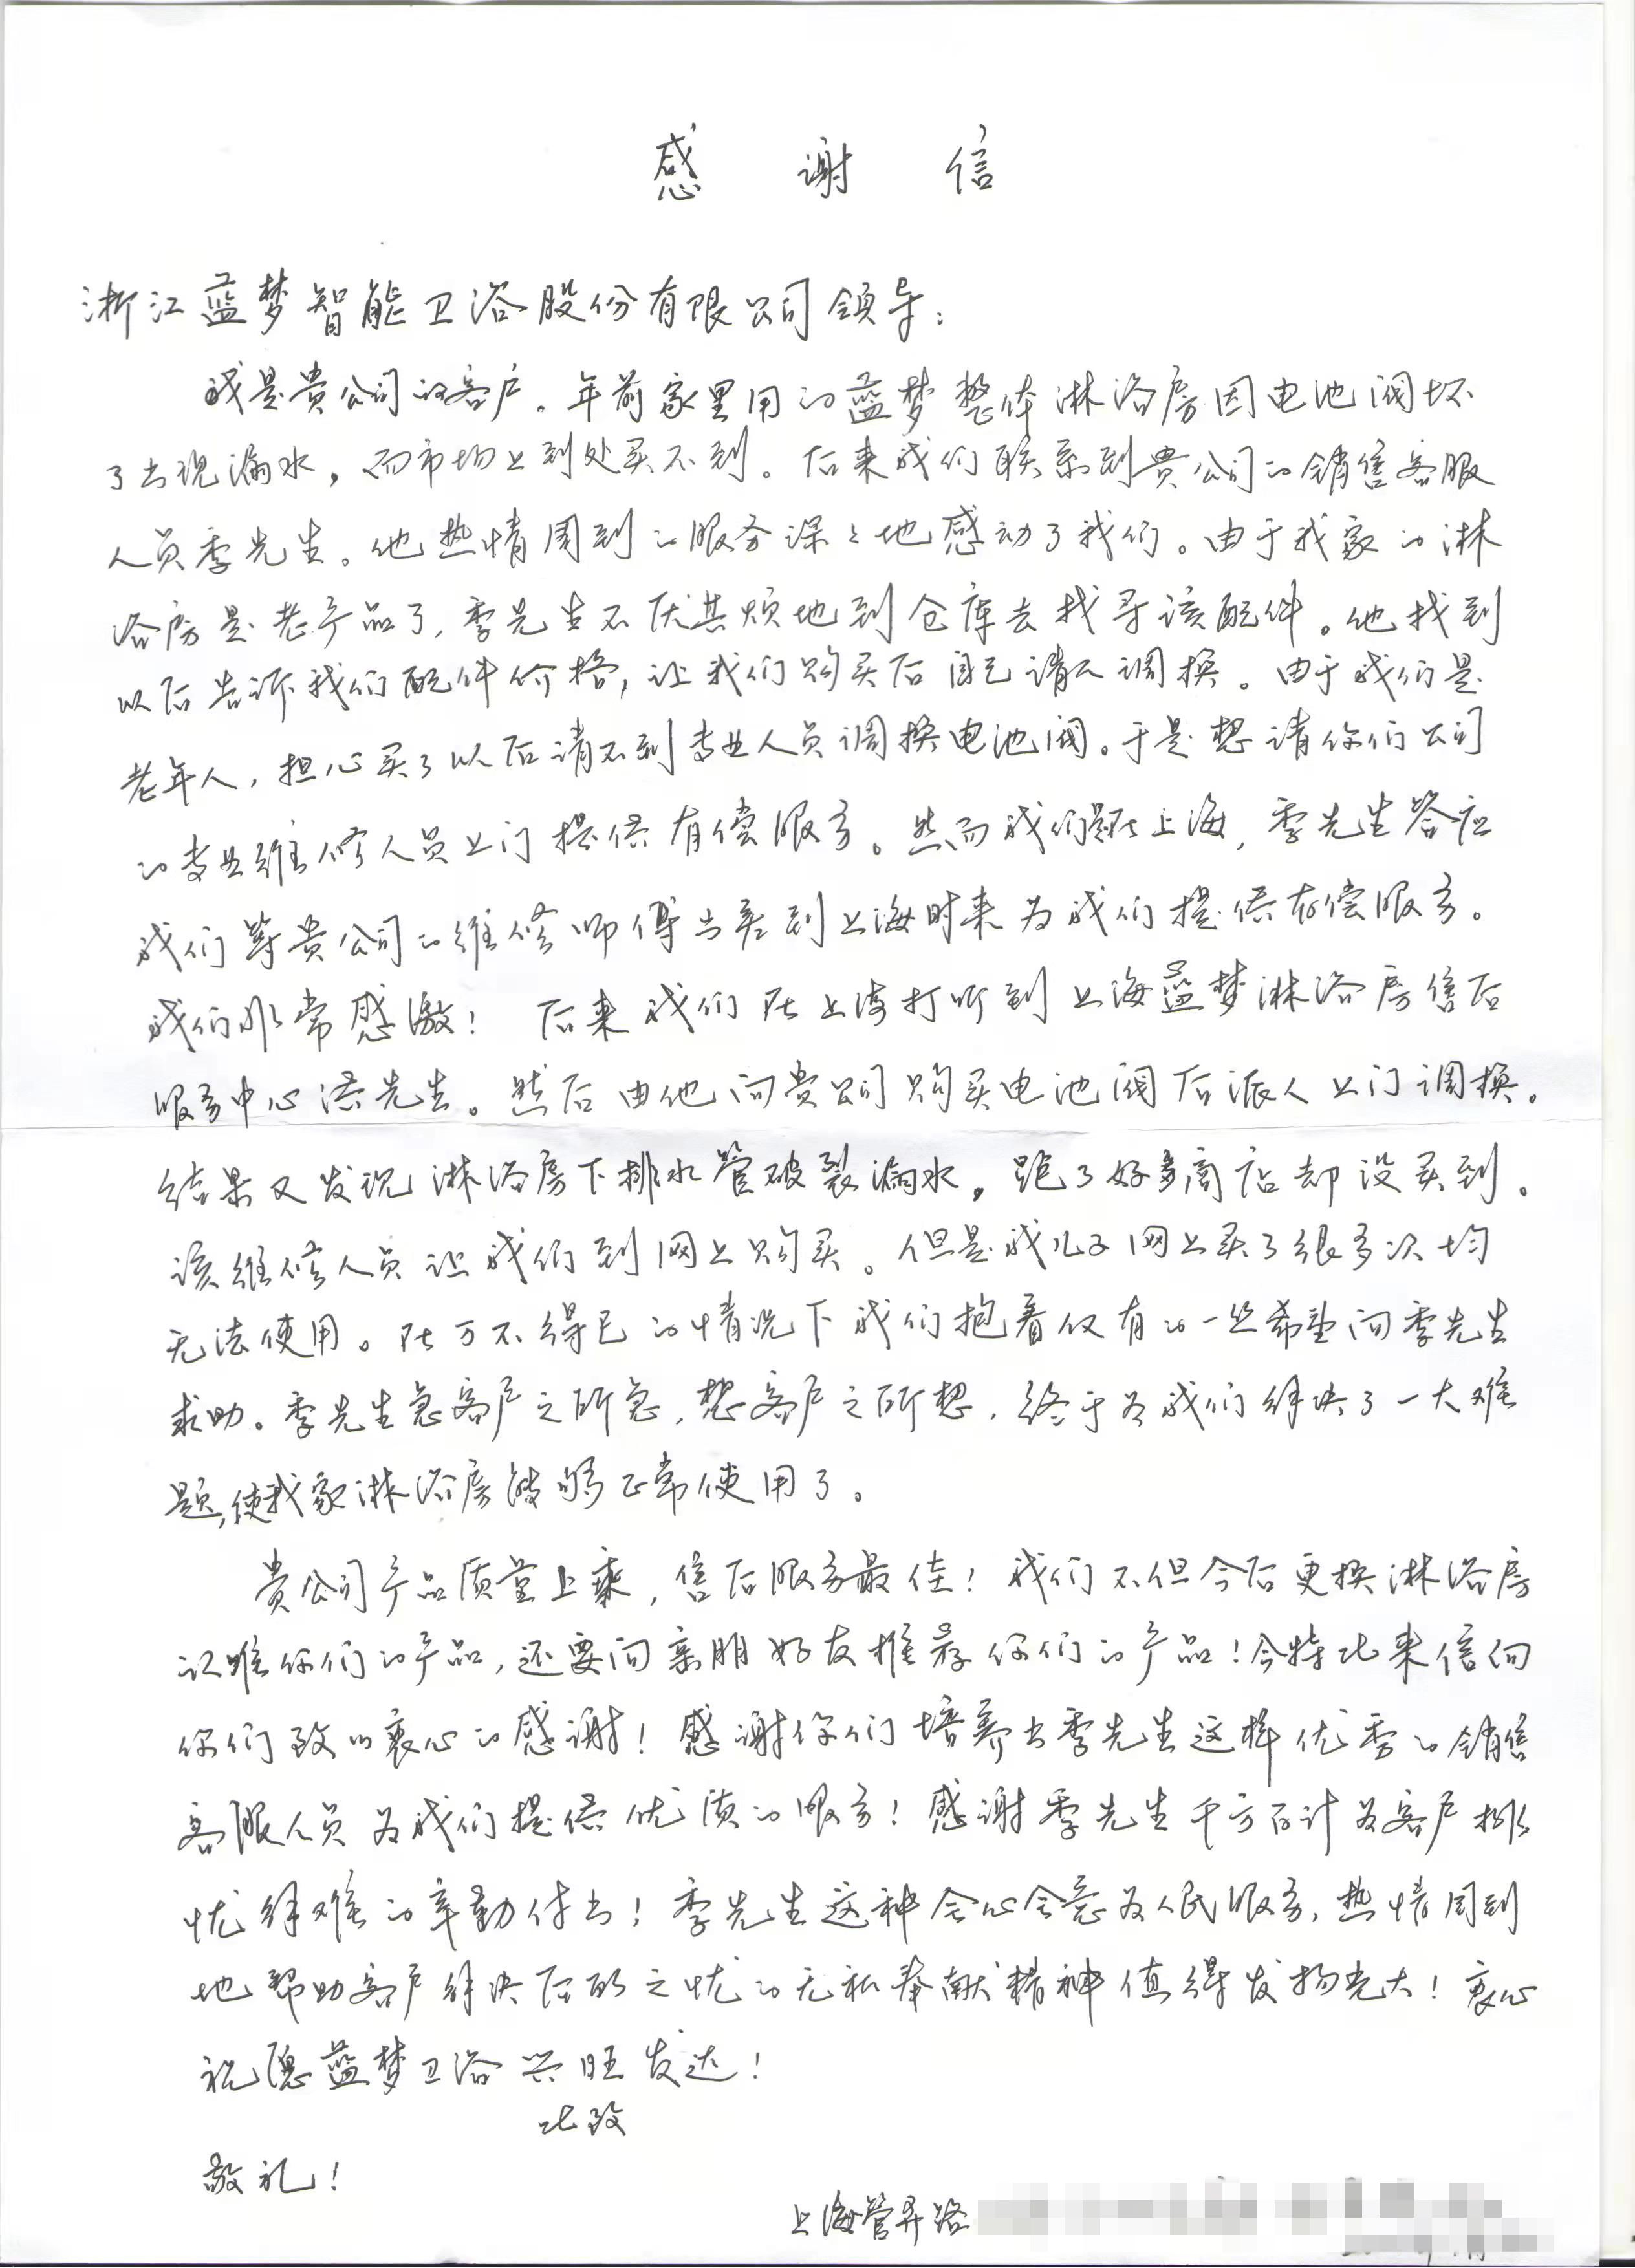 感谢信
浙江蓝梦智能卫浴股份有限公司领导：
我是贵公司的客户。年前家里用的蓝梦整体淋浴房因电池阀坏
了出现漏水，而市场上到处买不到。后来我们联系到贵公司的销售客服
人员季先生。他热情周到的服务深深地感动了我们。由于我家的淋
浴房是老产品了，季先生不厌其烦地到仓库去找寻该配件。他找到
以后告诉我们配件价格，让我们购买后自己请人调换。由于我们是
老年人，担心买了以后请不到专业人员调换电池阀。于是想请你们公司
的专业维修人员上门提供有偿服务。然而我们在上海，季先生答应
我们等贵公司的维修师傅出差到上海时来为我们提供有偿服务。
我们非常感激！后来我们在上海打听到上海蓝梦淋浴房售后
服务中心先生。然后由他向贵公司购买电池阀后派人上门调换。
结果又发现淋浴房下排水管破裂漏水。跑了好多商店却没买到。
该维修人员让我们到网上购买。但是我儿子网上买了很多次均
无法使用。在万不得已的情况下我们抱着仅有的一丝希望向季先生
求助。季先生急客户之所急，想客户之所想，终于为我们解决了一大难
题，使我家淋浴房能够正常使用了。
贵公司产品质量上乘，售后服务最佳！我们不但今后更换淋浴房
认准你们的产品，还要向亲朋好友推荐你们的产品！今特此来信向
你们致以衷心的感谢！感谢你们培养出季先生这样优秀的销售
客服人员为我们提供优质的服务！感谢季先生千方百计为客户排
忧解难的辛勤付出！季先生这种全心全意为人民服务，热情周到
地帮助客户解决后顾之忧的无私奉献精神值得发扬光大！衷心
祝愿蓝梦卫浴兴旺发达！
此致
敬礼！
上海管弄路